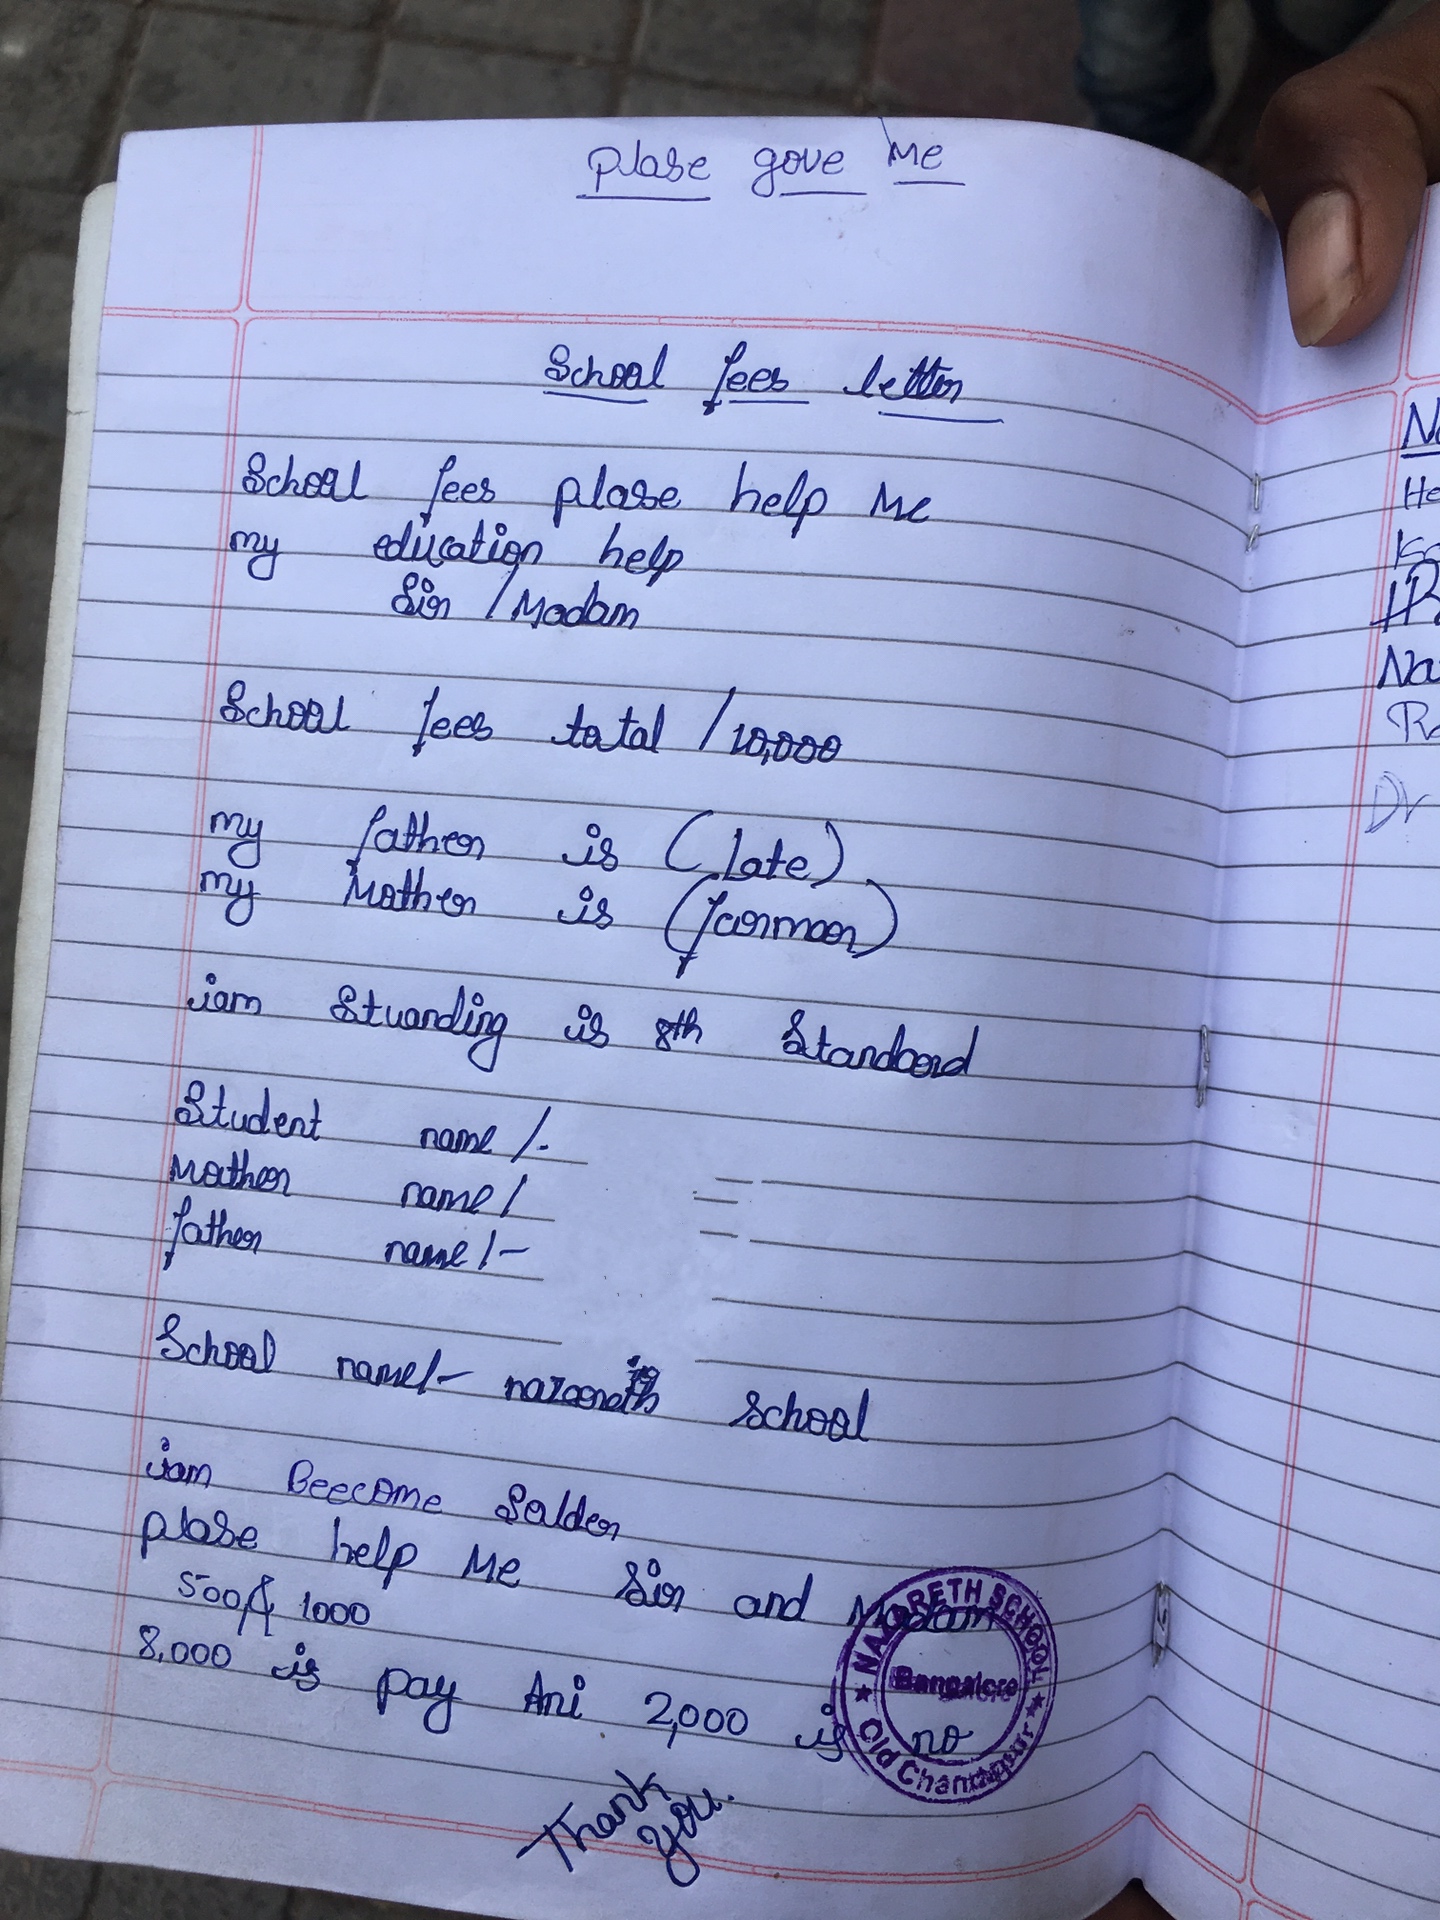 plase gove Me
School fees letter
School fees plase help Me
my education help
Sir / Madam
School fees total / 10,000
my father is (late)
my Mother is (farmoor)
iam Stuanding is 8th Standoord
Student name /-
Mother name /
father name /-
School name /- School
iam Beecome Solder
plase help Me Sir and Madam
500/ 1000
8,000 is pay Ani 2,000 is no
Thank
you.
NAZARETH SCHOOL
Bangalore
Old Chandapur
He
Dr